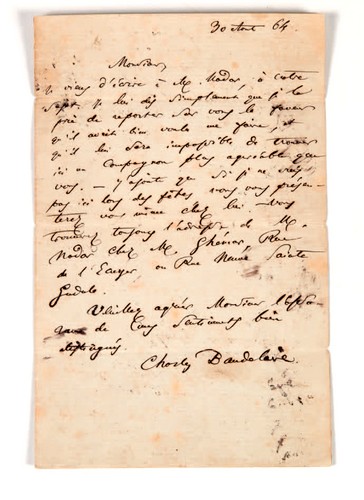 30 Août 64.
Monsieur,
Je viens d'écrire à M. Nadar, à votre
sujet. Je lui dis simplement que je le
prie de reporter sur vous la faveur
qu'il avait bien voulu me faire, et
qu'il lui sera impossible de trouver
ici un compagnon plus agréable que
vous. — J'ajoute que si je ne suis
pas ici lors des fêtes vous vous présen-
terez vous même chez lui — Vous
trouverez toujours l'adresse de M.
Nadar chez M. Ghémar, Rue
de l'Ecuyer ou Rue Neuve Sainte
Gudule.
Veuillez agréer Monsieur l'assu
rance de mes sentiments bien
distingués.
Charles Baudelaire.